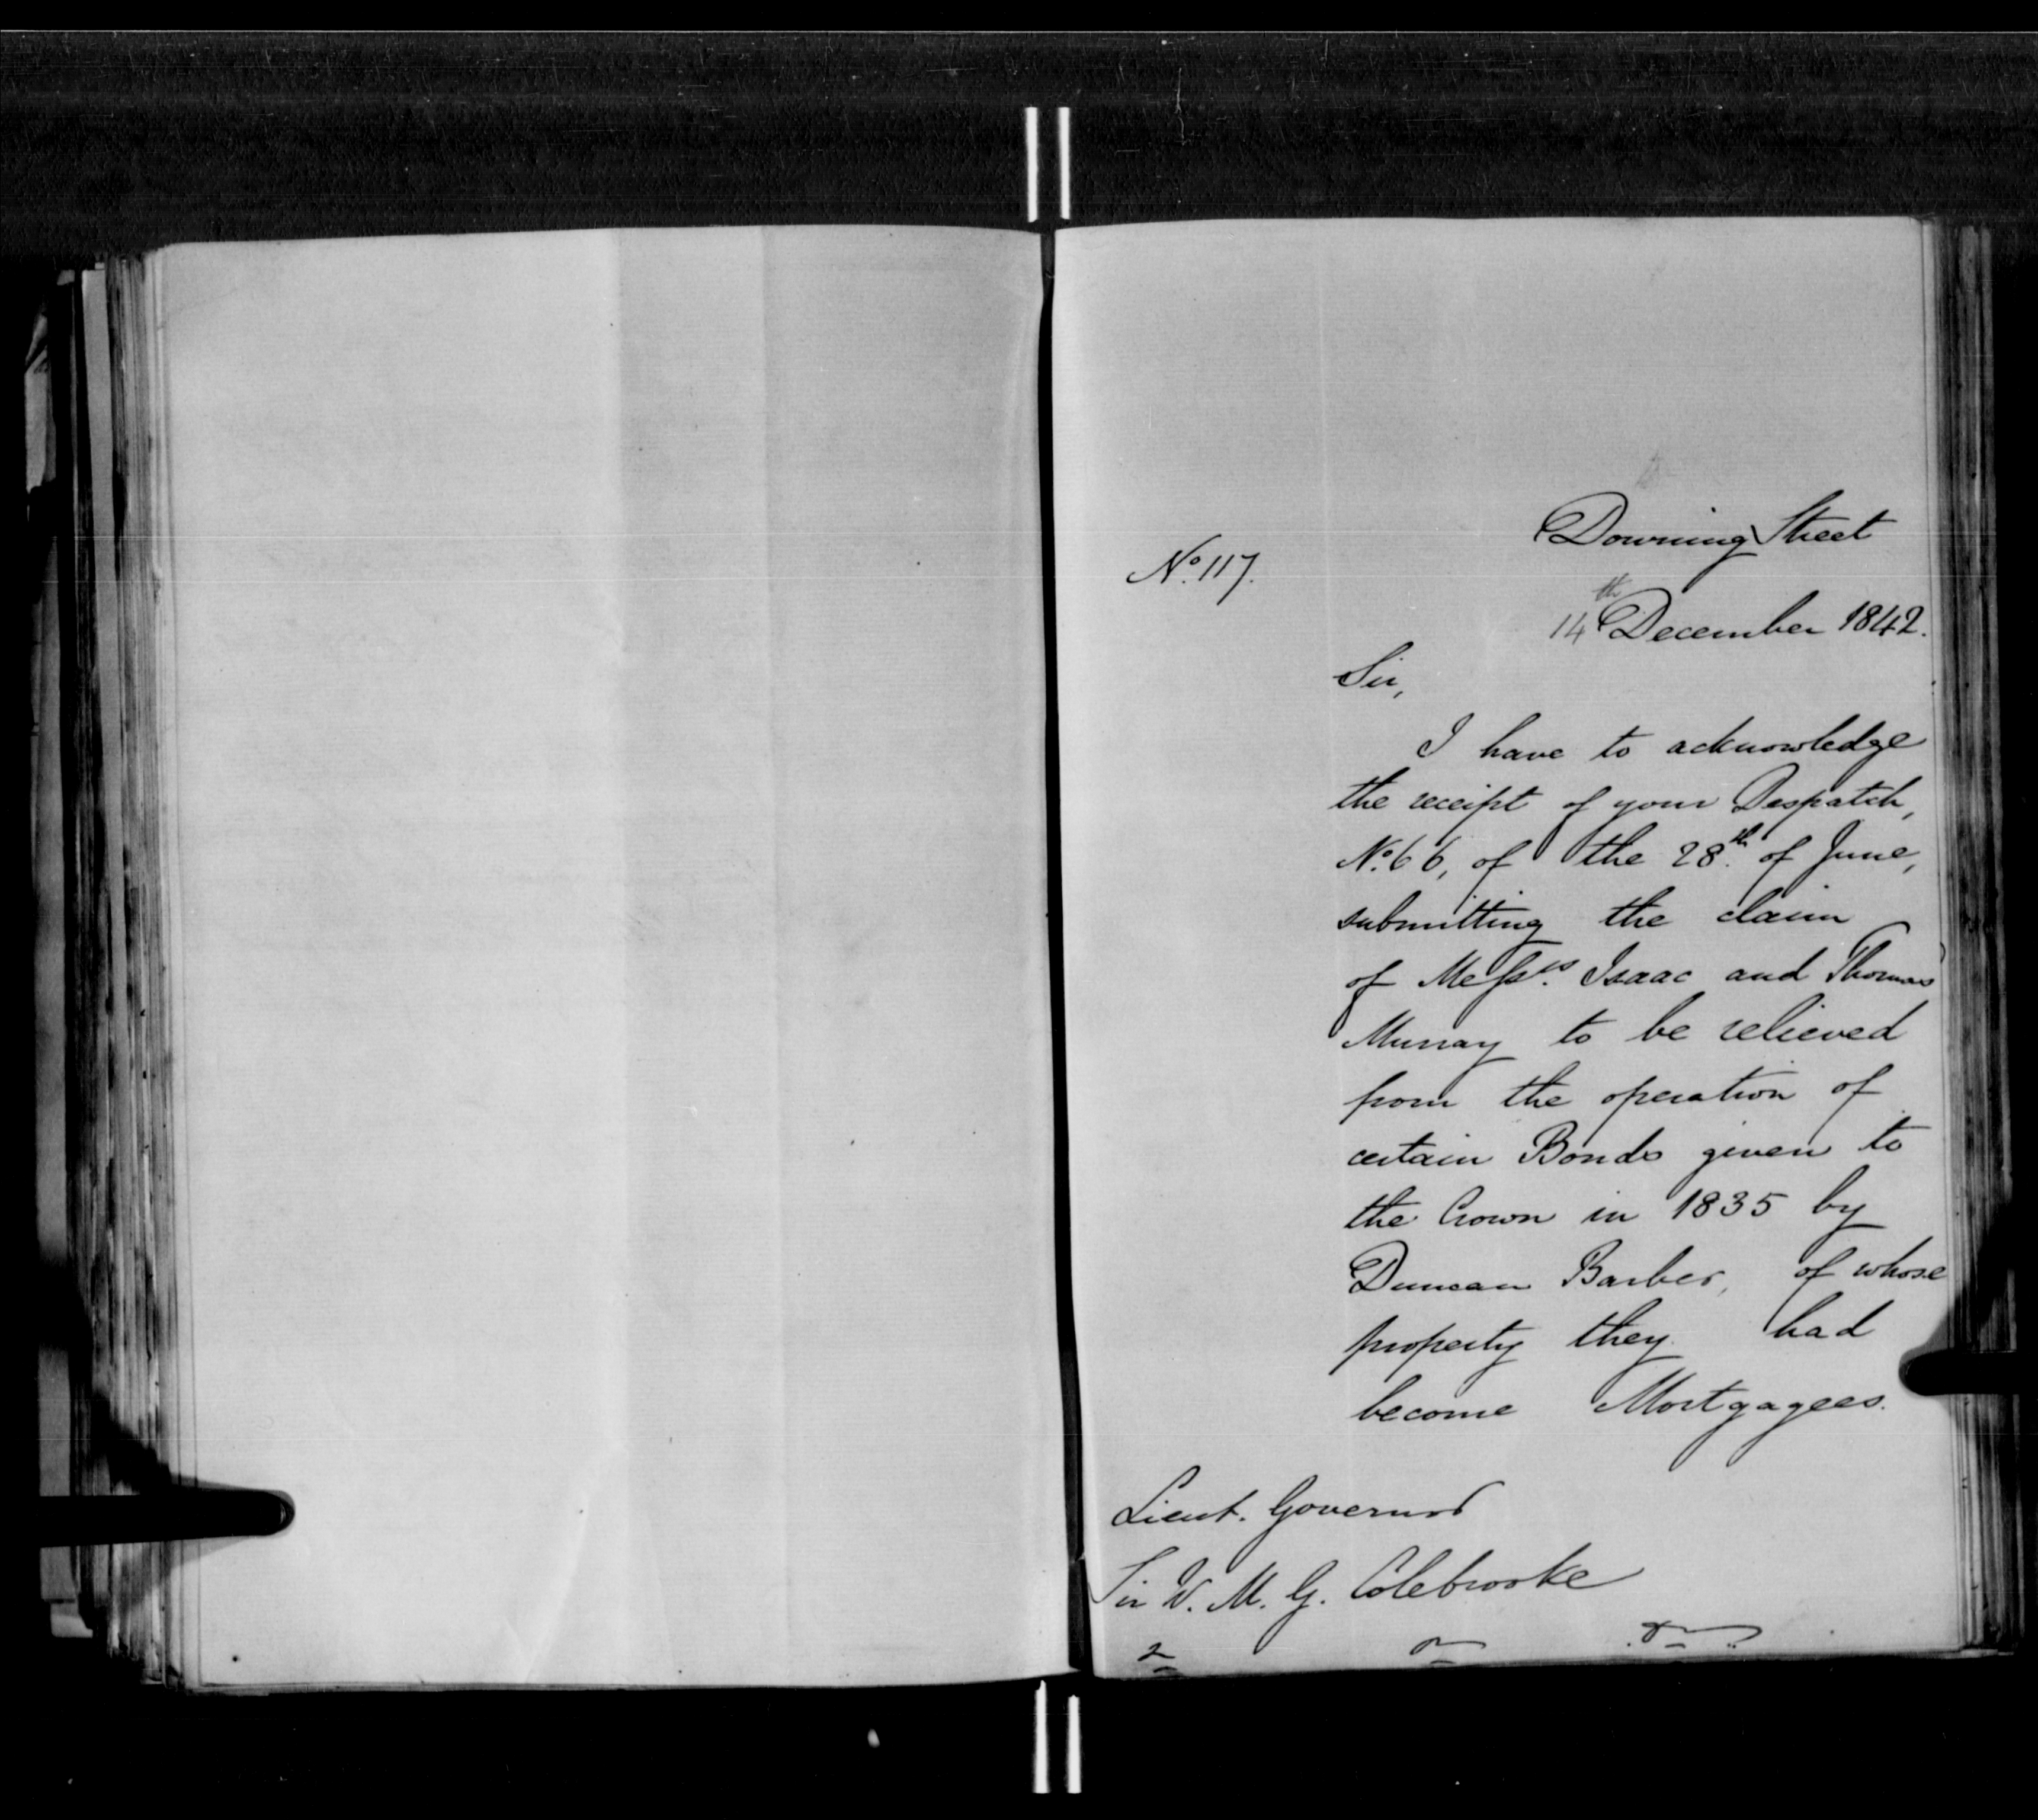 Downing Street
No. 117.
14th December 1842.
Sir,
I have to acknowledge
the receipt of your Despatch,
No. 66, of the 28th. of June,
submitting the claim
of Messrs. Isaac and Thomas
Murray to be relieved
from the operation of
certain Bonds given to
the Crown in 1835 by
Duncan Barber, of whose
property they had
become Mortgagees.
Lieut. Governor
Sir W. M. G. Colebrooke